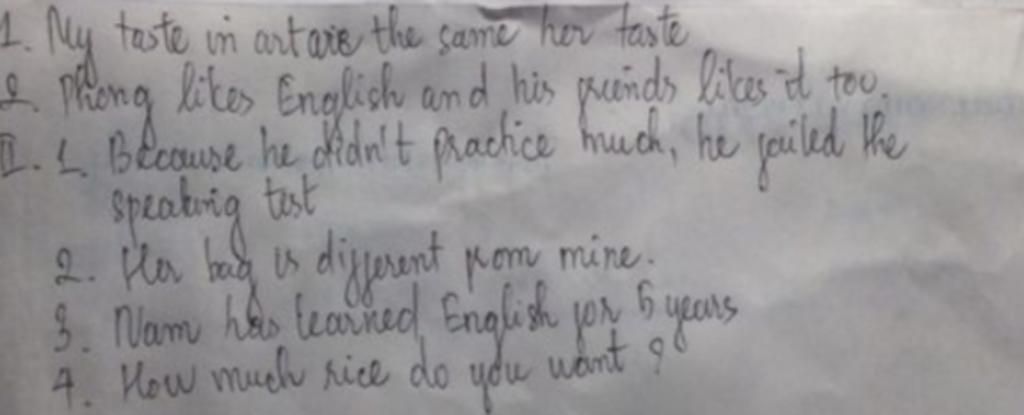 1. My taste in art are the same her taste
2. Phong likes English and his friends likes it too.
II. 1. Because he didn't practice much, he failed the
speaking test
2. Her bag is different from mine.
3. Nam has learned English for 5 years
4. How much rice do you want?